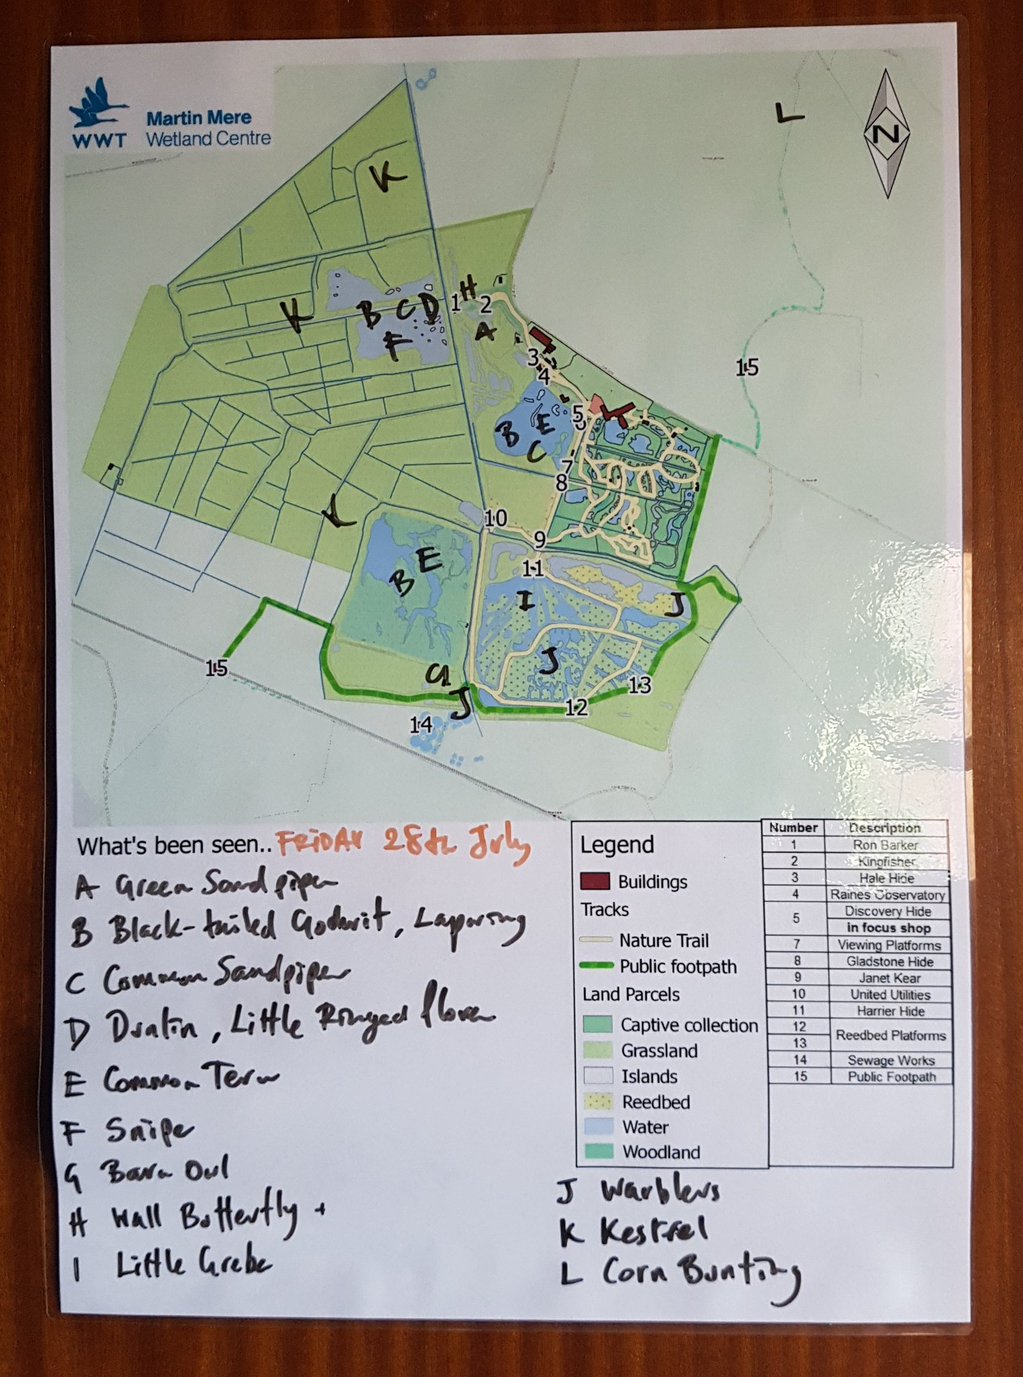 WWT
Martin Mere
Wetland Centre
N
L
K
K
B C D
F
1 H 2
A
3
4
5
15
B E
C
7
8
K
10
9
11
B E
I
J
J
G
J
15
14
12
13
What's been seen.. FRIDAY 28th July
A Green Sandpiper
B Black-tailed Godwit, Lapwing
C Common Sandpiper
D Dunlin, Little Ringed Plover
E Common Tern
F Snipe
G Barn Owl
H Wall Butterfly +
I Little Grebe
J Warblers
K Kestrel
L Corn Bunting
Legend
Buildings
Tracks
Nature Trail
Public footpath
Land Parcels
Captive collection
Grassland
Islands
Reedbed
Water
Woodland
Number Description
1 Ron Barker
2 Kingfisher
3 Hale Hide
4 Raines Observatory
5 Discovery Hide
in focus shop
7 Viewing Platforms
8 Gladstone Hide
9 Janet Kear
10 United Utilities
11 Harrier Hide
12 Reedbed Platforms
13
14 Sewage Works
15 Public Footpath